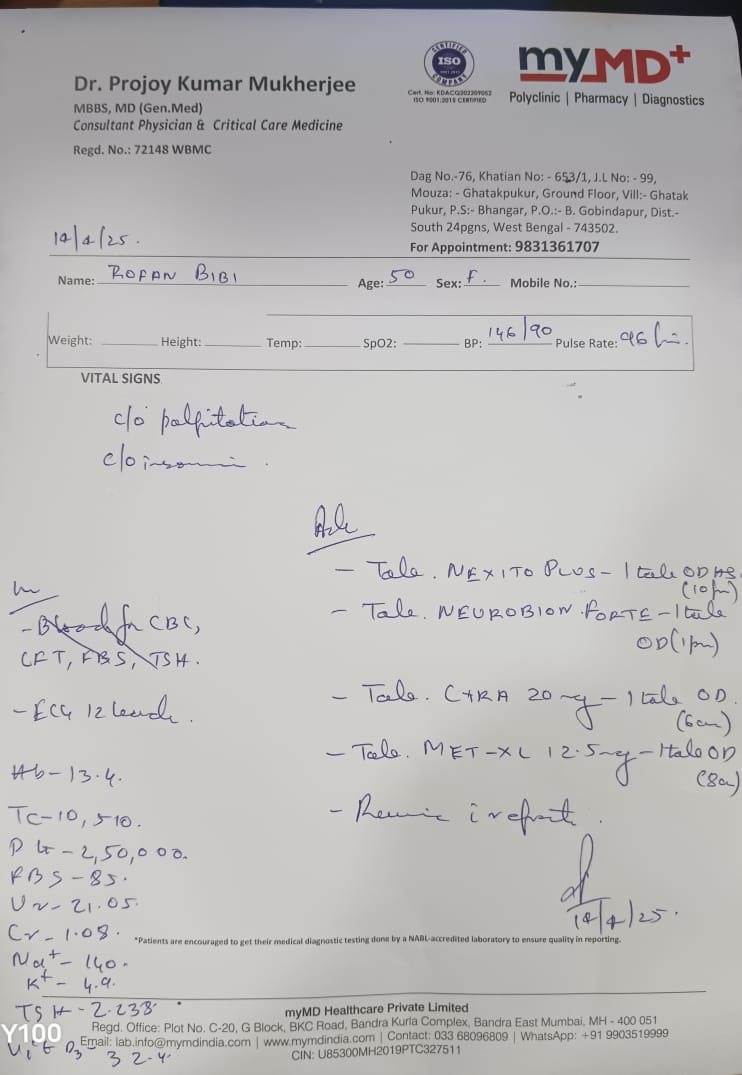 Dr. Projoy Kumar Mukherjee
MBBS, MD (Gen.Med)
Consultant Physician & Critical Care Medicine
Regd. No.: 72148 WBMC
CERTIFIED
ISO
9001:2015
COMPANY
Cert. No: KDACQ202209052
ISO 9001:2015 CERTIFIED
myMD+
Polyclinic | Pharmacy | Diagnostics
Dag No.-76, Khatian No: - 653/1, J.L No: - 99,
Mouza: - Ghatakpukur, Ground Floor, Vill:- Ghatak
Pukur, P.S:- Bhangar, P.O.:- B. Gobindapur, Dist.-
South 24pgns, West Bengal - 743502.
For Appointment: 9831361707
14/4/25.
Name: ROFAN BIBI Age: 50 Sex: F. Mobile No.:
Weight: Height: Temp: SpO2: BP: 146/90 Pulse Rate: 96
VITAL SIGNS
c/o palpitation
c/o insomni
Adv
- Tab. NEXITO PLUS - 1 tab OD HS
(10pm)
- Tab. NEUROBION FORTE - 1 tab
OD (1pm)
- Tab. CYRA 20 mg - 1 tab OD.
(6am)
- Tab. MET-XL 12.5 mg - 1 tab OD
(8a)
- Review i report.
14/4/25.
Inv
- Blood for CBC,
CFT, FBS, TSH.
- ECG 12 lead.
Hb - 13.4.
Tc - 10,510.
Plt - 2,50,000.
FBS - 85.
Ur - 21.05.
Cr - 1.08.
Na+ - 140.
K+ - 4.9.
TSH - 2.238
Vit D3 - 32.4.
*Patients are encouraged to get their medical diagnostic testing done by a NABL-accredited laboratory to ensure quality in reporting.
myMD Healthcare Private Limited
Regd. Office: Plot No. C-20, G Block, BKC Road, Bandra Kurla Complex, Bandra East Mumbai, MH - 400 051
Email: lab.info@mymdindia.com | www.mymdindia.com | Contact: 033 68096809 | WhatsApp: +91 9903519999
CIN: U85300MH2019PTC327511
Y100